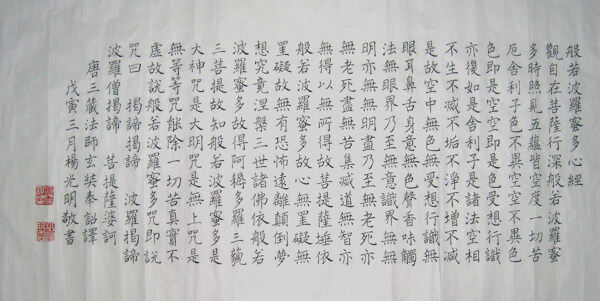 般若波羅蜜多心經
觀自在菩薩行深般若波羅蜜
多時照見五蘊皆空度一切苦
厄舍利子色不異空空不異色
色即是空空即是色受想行識
亦復如是舍利子是諸法空相
不生不滅不垢不淨不增不減
是故空中無色無受想行識無
眼耳鼻舌身意無色聲香味觸
法無眼界乃至無意識界無無
明亦無無明盡乃至無老死亦
無老死盡無苦集滅道無智亦
無得以無所得故菩提薩埵依
般若波羅蜜多故心無罣礙無
罣礙故無有恐怖遠離顛倒夢
想究竟涅槃三世諸佛依般若
波羅蜜多故得阿耨多羅三藐
三菩提故知般若波羅蜜多是
大神咒是大明咒是無上咒是
無等等咒能除一切苦真實不
虛故說般若波羅蜜多咒即說
咒曰 揭諦揭諦 波羅揭諦
波羅僧揭諦 菩提薩婆訶
唐三藏法師玄奘奉詔譯
戊寅三月楊光明敬書